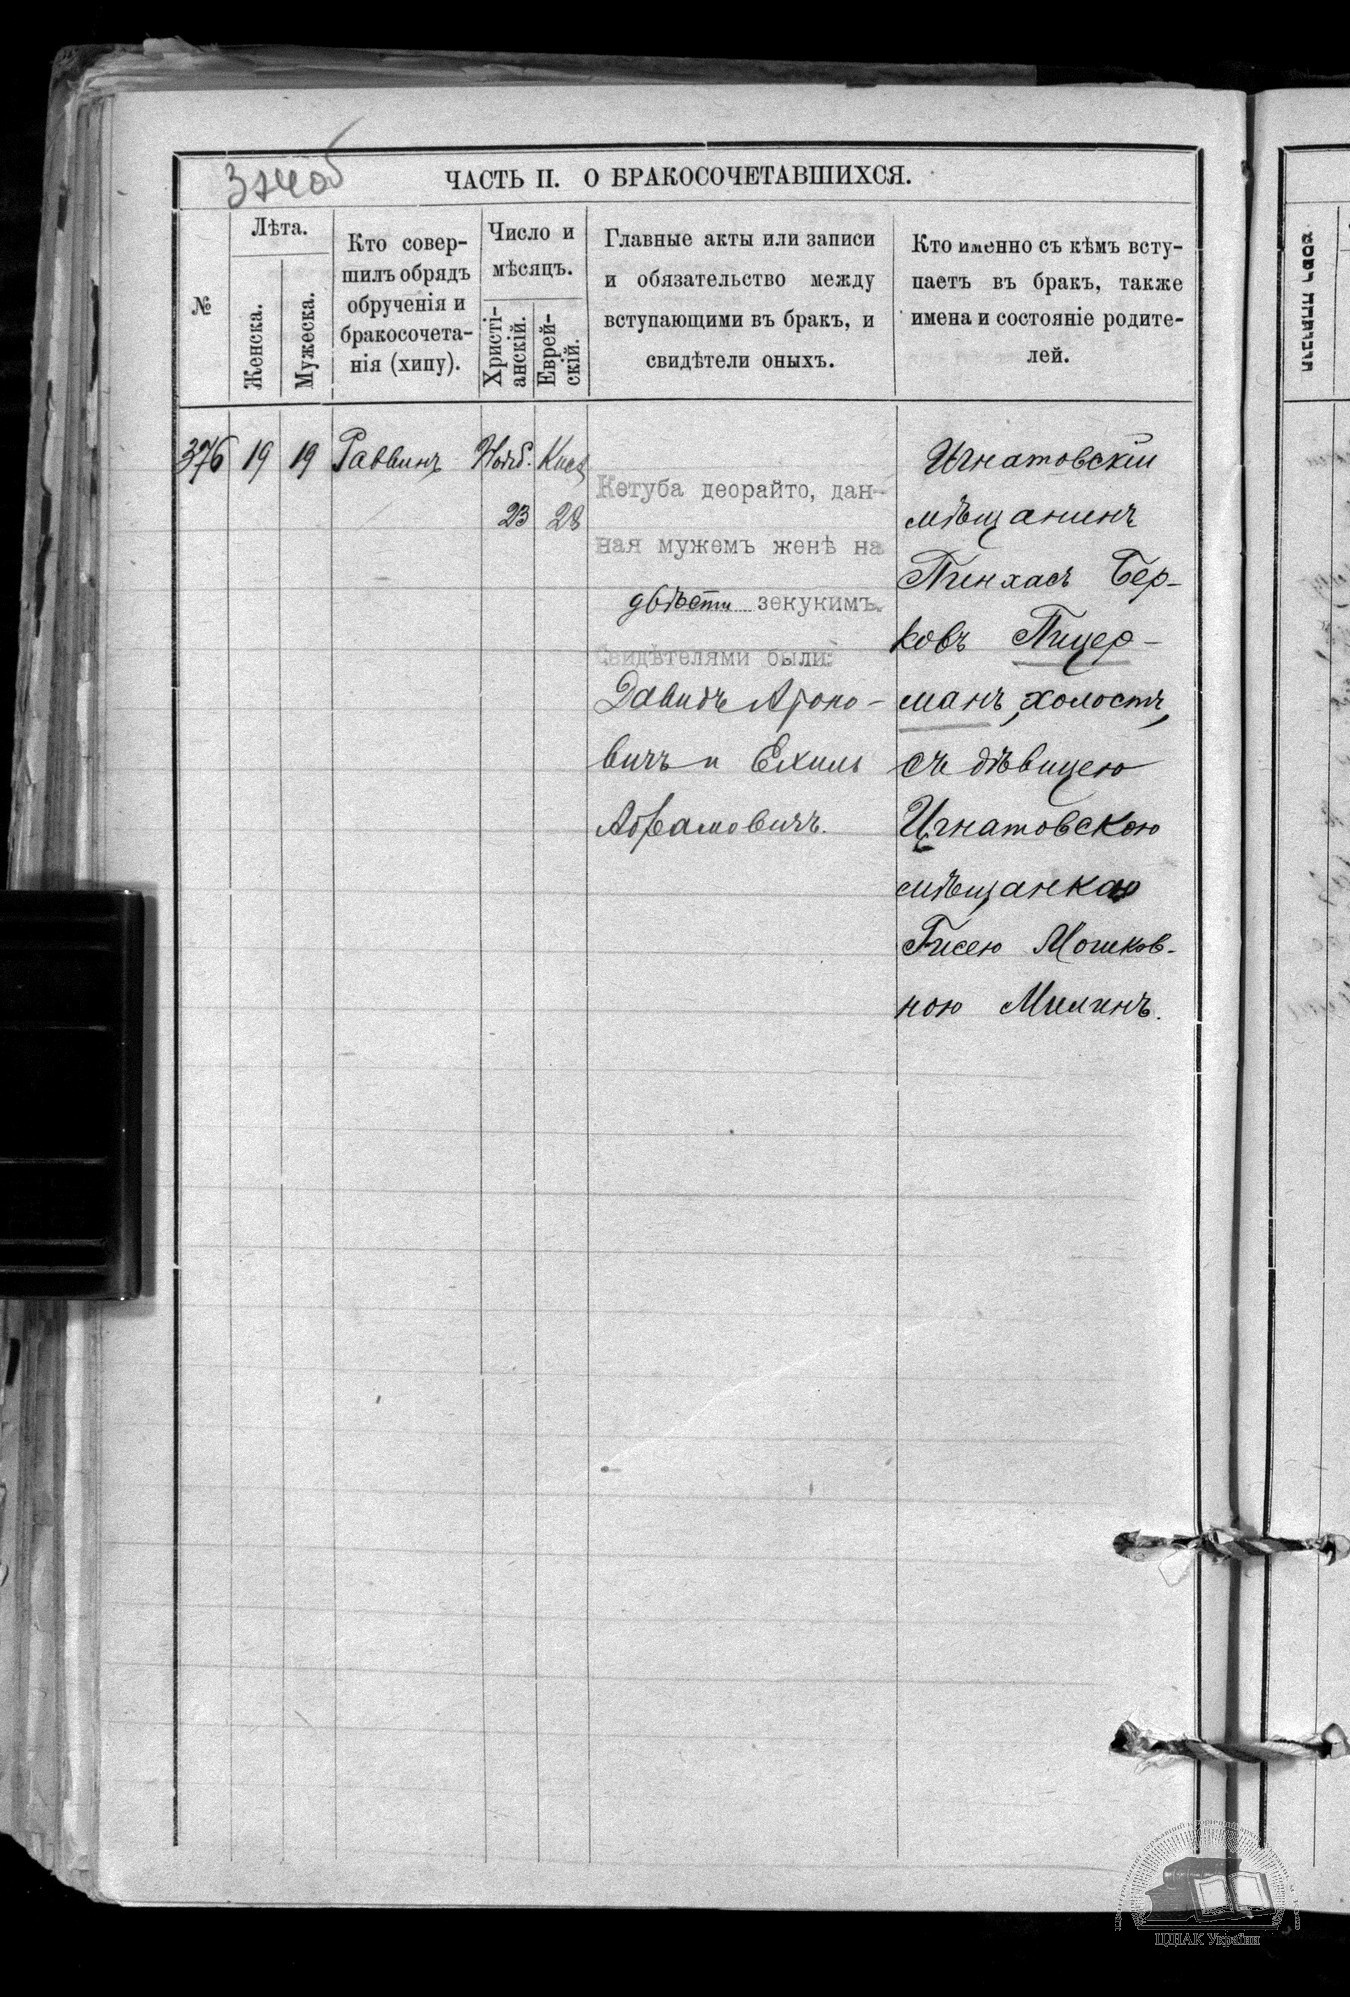 374об
ЧАСТЬ II. О БРАКОСОЧЕТАВШИХСЯ.
№
Лѣта.
Женска.
Мужеска.
Кто совер-
шилъ обрядъ
обрученія и
бракосочета-
нія (хипу).
Число и
мѣсяцъ.
Христі-
анскій.
Еврей-
скій.
Главные акты или записи
и обязательство между
вступающими въ брак, и
свидѣтели оныхъ.
Кто именно съ кѣмъ всту-
паетъ въ бракъ, также
имена и состояніе родите-
лей.
376 19 19 Раввинъ Нояб. Кисл
23 28
Кетуба деорайто, дан-
ная мужемъ женѣ на
двѣсти зекукимъ.
Свидѣтелями были:
Давидъ Ароно-
вичъ и Ехиль
Абрамовичъ.
Игнатовскій
мѣщанинъ
Пинхасъ Бер-
ковъ Пицер-
манъ, холостъ,
съ дѣвицею
Игнатовскою
мѣщанкою
Гисею Мошков-
ною Милинъ.
ЦДІАК України